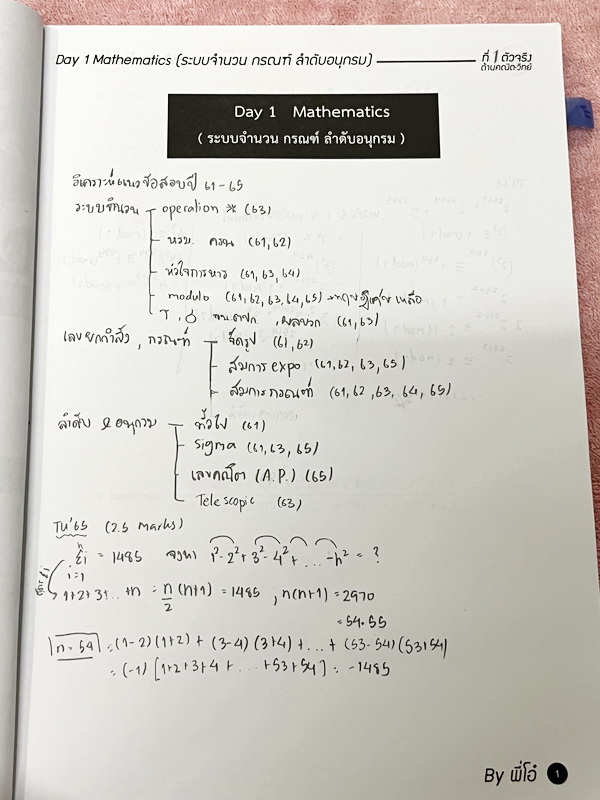 Day 1 Mathematics (ระบบจำนวน กรณฑ์ ลำดับอนุกรม)
ที่ 1 ตัวจริง
ด้านคณิต-วิทย์
Day 1 Mathematics
( ระบบจำนวน กรณฑ์ ลำดับอนุกรม )
วิเคราะห์แนวข้อสอบปี 61-65
ระบบจำนวน operation * (63)
หรม. ครน (61,62)
หัวใจการหาร (61,63,64)
modulo (61,62,63,64,65)
ผลบวก (61,63)
เลขยกกำลัง, กรณฑ์ จัดรูป (61,62)
สมการ expo (61,62,63,65)
สมการกรณฑ์ (61,62,63,64,65)
ลำดับ & อนุกรม ทั่วไป (61)
Sigma (61,63,65)
เลขคณิต (A.P.) (65)
Telescopic (63)
TU'65 (2.5 marks)
n
Σi = 1485 จงหา 1²-2²+3²-4²+...-n² = ?
i=1
1+2+3+...+n = n/2 (n+1) = 1485 ; n(n+1) = 2970
= 54.55
n=54 = (1-2)(1+2) + (3-4)(3+4) + ... + (53-54)(53+54)
= (-1) [1+2+3+4+ ... +53+54] = -1485
By พี่โอ๋ 1